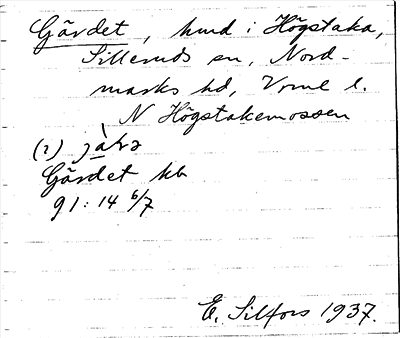 Gärdet, hmd i Högstaka,
Silleruds sn, Nord-
marks hd, Vrml l.
N Högstakemossen
(2)
Gärdet kb
91: 14 6/7
E. Silfors 1937.